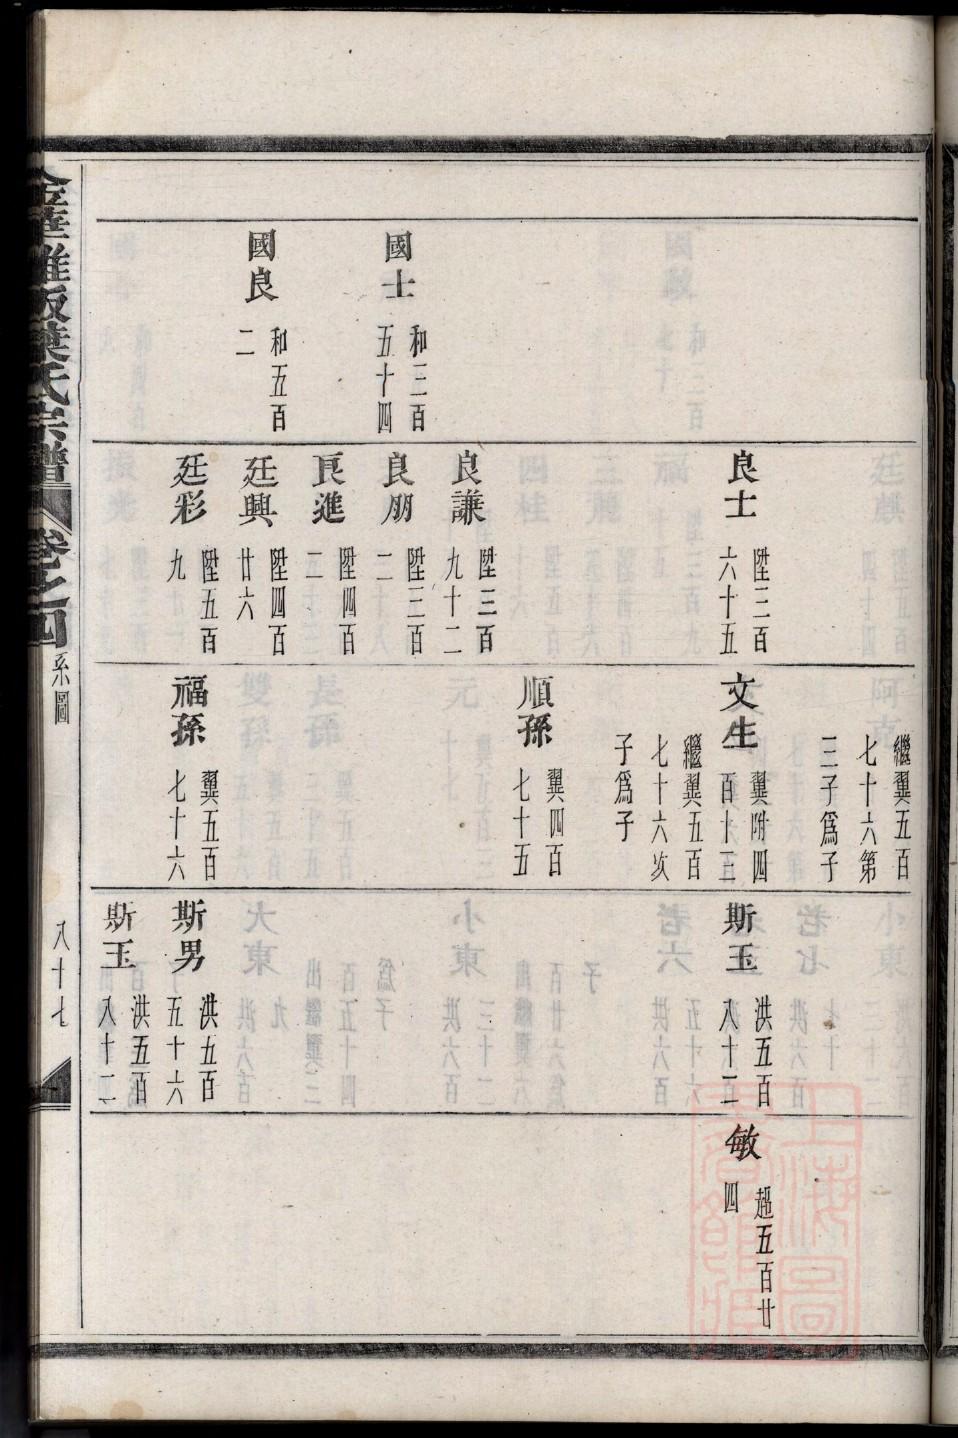 國士
和三百
五十四
國良
和五百
二
良士
陞三百
六十五
良謙
陞三百
九十二
良朋
陞三百
二
良進
陞四百
二
廷興
陞四百
廿六
廷彩
陞五百
九
繼翼五百
七十六第
三子爲子
文生
翼附四
百十三
繼翼五百
七十六次
子爲子
順孫
翼四百
七十五
福孫
翼五百
七十六
斯玉
洪五百
八十二
斯男
洪五百
五十六
斯玉
洪五百
八十二
敏
趨五百廿
四
葉氏宗譜
卷之四
系圖
八十七